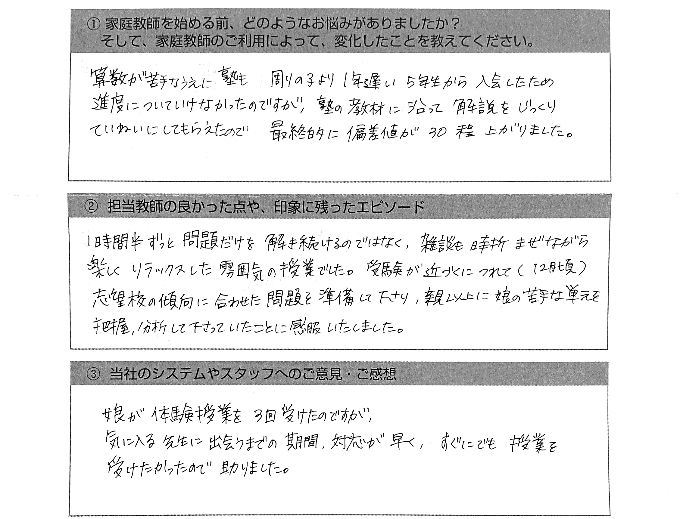 ① 家庭教師を始める前、どのようなお悩みがありましたか？
そして、家庭教師のご利用によって、変化したことを教えてください。
算数が苦手なうえに 塾も 周りの子より 1年遅い 5年生から 入会したため
進度についていけなかったのですが、塾の教材に沿って 解説を じっくり
ていねいにしてもらえたので 最終的に 偏差値が 30 程 上がりました。
② 担当教師の良かった点や、印象に残ったエピソード
1時間半ずっと 問題だけを 解き続けるのではなく、雑談も 時折 まぜながら
楽しく リラックスした 雰囲気の 授業でした。受験が 近づくにつれて(12月頃)
志望校の傾向に 合わせた 問題を 準備して 下さり、親以上に 娘の苦手な単元を
把握、分析して下さっていたことに 感服いたしました。
③ 当社のシステムやスタッフへのご意見・ご感想
娘が 体験授業を 3回 受けたのですが、
気に入る 先生に 出会うまでの 期間、対応が 早く、すぐにでも 授業を
受けたかったので 助かりました。